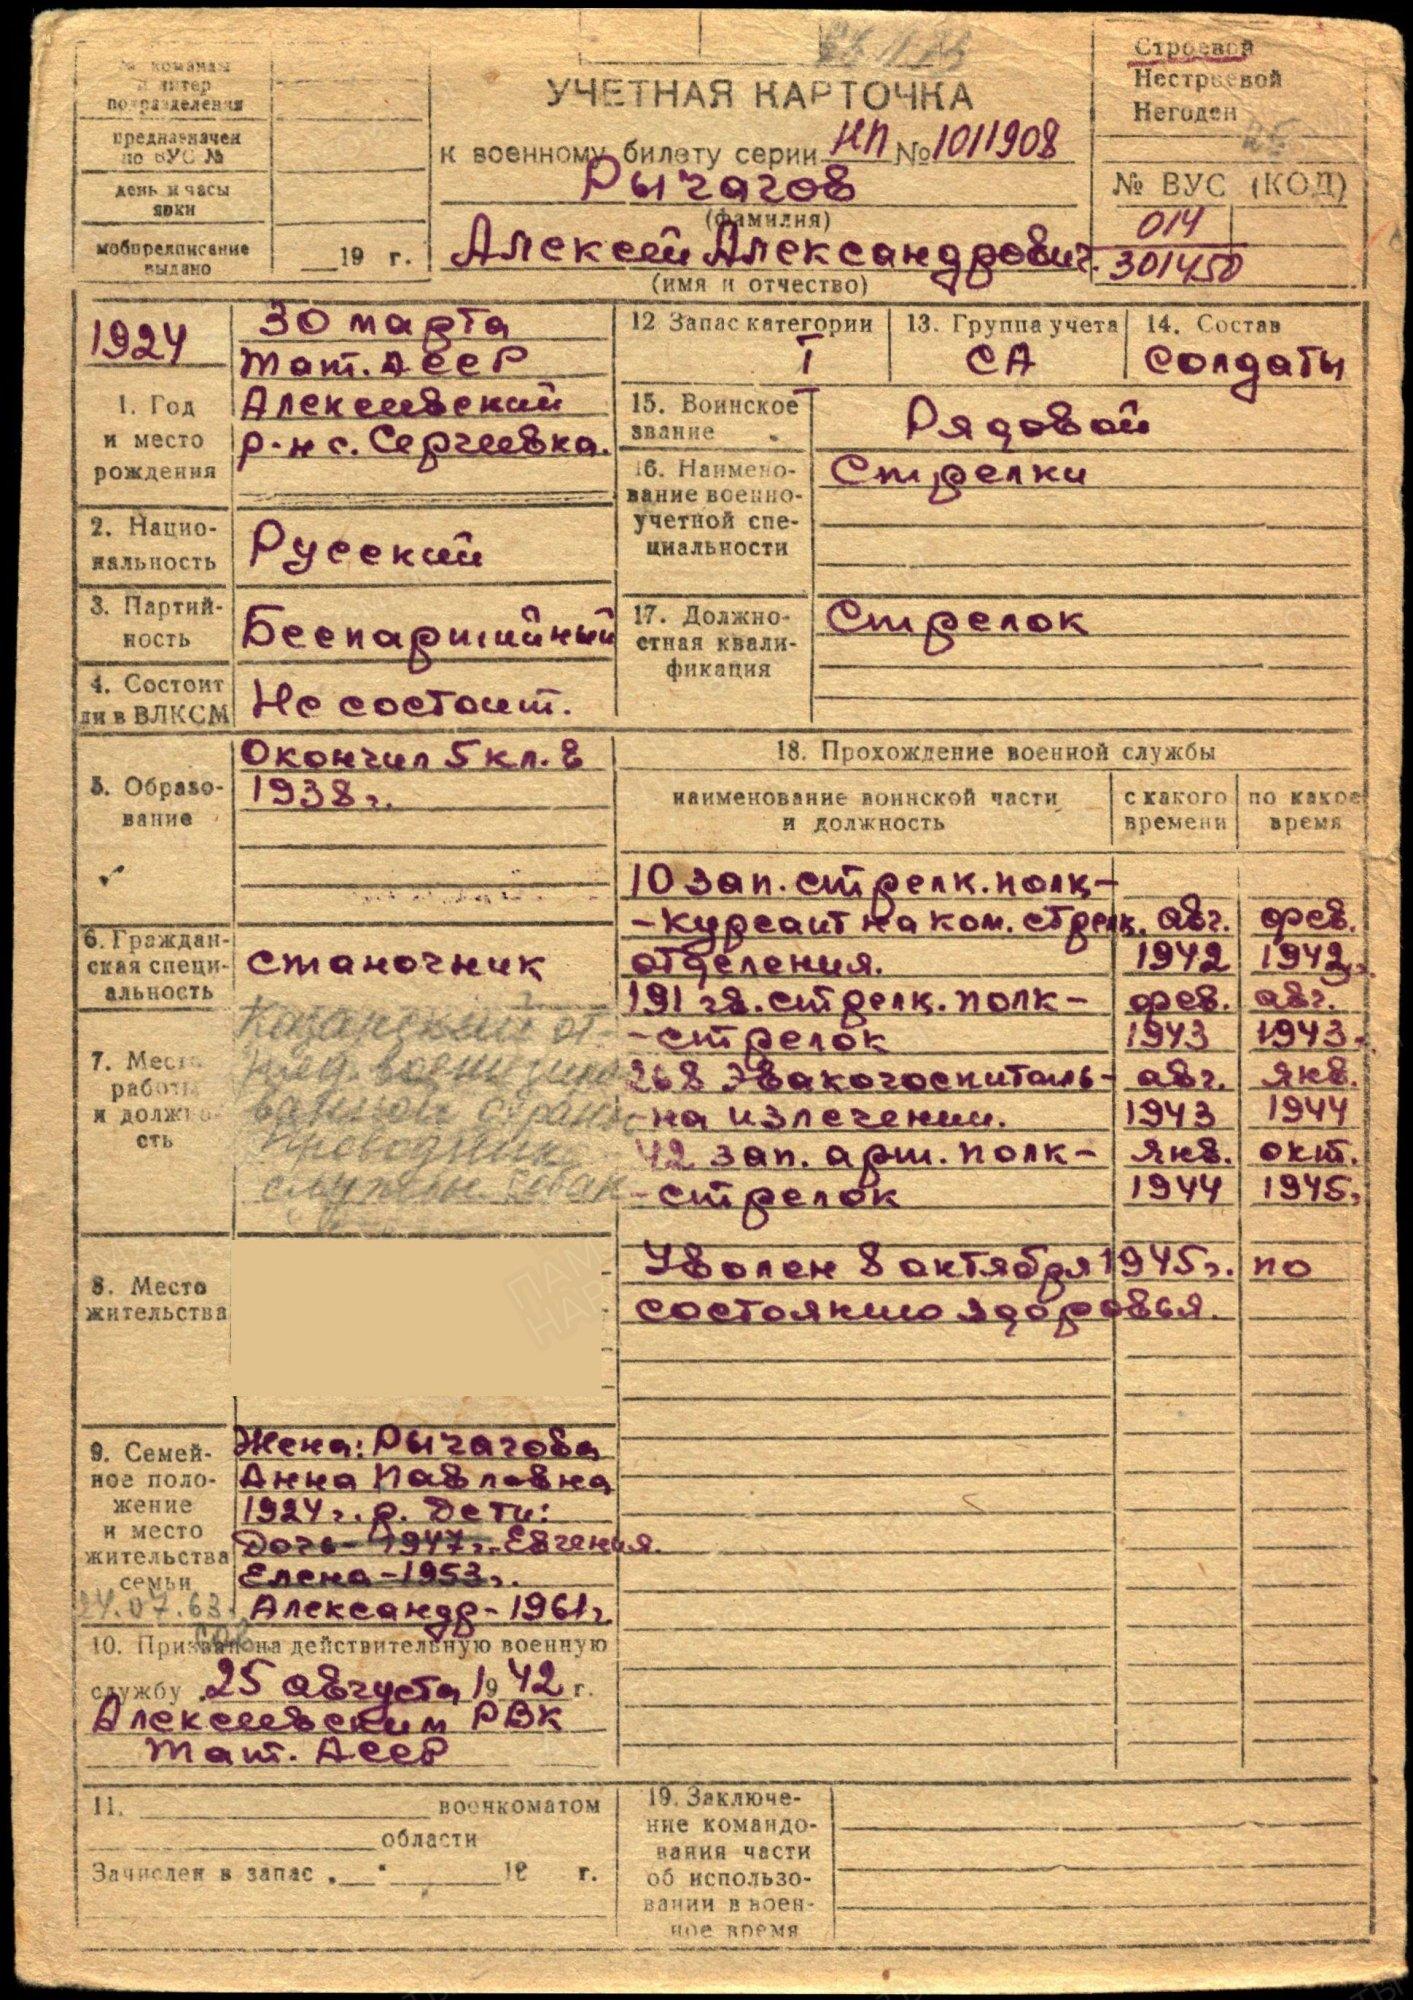 № команды
и литер
подразделения
предназначен
по ВУС №
день и часы
явки
мобпредписание
выдано
19 г.
УЧЕТНАЯ КАРТОЧКА
к военному билету серии НП № 1011908
Рычагов
(фамилия)
Алексей Александрович.
(имя и отчество)
Строевой
Нестроевой
Негоден
№ ВУС (КОД)
014
301450
1924
1. Год
и место
рождения
30 марта
Тат. АССР
Алексеевский
р-н с. Сергеевка.
2. Нацио-
нальность
Русский
3. Партий-
ность
Беспартийный
4. Состоит
ли в ВЛКСМ
Не состоит.
5. Образо-
вание
Окончил 5 кл. в
1938 г.
6. Граждан-
ская специ-
альность
станочник
7. Место
работы
и должно-
сть
Казанский от-
ряд военизиро-
ванной охраны
проводник
служеб. собак
8. Место
жительства
9. Семей-
ное поло-
жение
и место
жительства
семьи
24.07.63.
Жена: Рычагова
Анна Павловна
1924 г. р. Дети:
Дочь - 1947 г. Евгения.
Елена - 1953 г.
Александр - 1961 г.
10. Призван на действительную военную
службу 25 августа 1942 г.
Алексеевским РВК
Тат. АССР
11. военкоматом
области
Зачислен в запас 19 г.
12 Запас категории
I
13. Группа учета
СА
14. Состав
солдаты
15. Воинское
звание
Рядовой
16. Наимено-
вание военно-
учетной спе-
циальности
Стрелки
17. Должно-
стная квали-
фикация
Стрелок
18. Прохождение военной службы
наименование воинской части
и должность
с какого
времени
по какое
время
10 зап. стрелк. полк -
- курсант на ком. стрелк. авг. фев.
отделения. 1942 1942 г.
191 гв. стрелк. полк - фев. авг.
- стрелок 1943 1943.
268 эвакогоспиталь- авг. янв.
- на излечении. 1943 1944
42 зап. арт. полк - янв. окт.
- стрелок 1944 1945.
Уволен 8 октября 1945 г. по
состоянию здоровья.
19. Заключе-
ние командо-
вания части
об использо-
вании в воен-
ное время